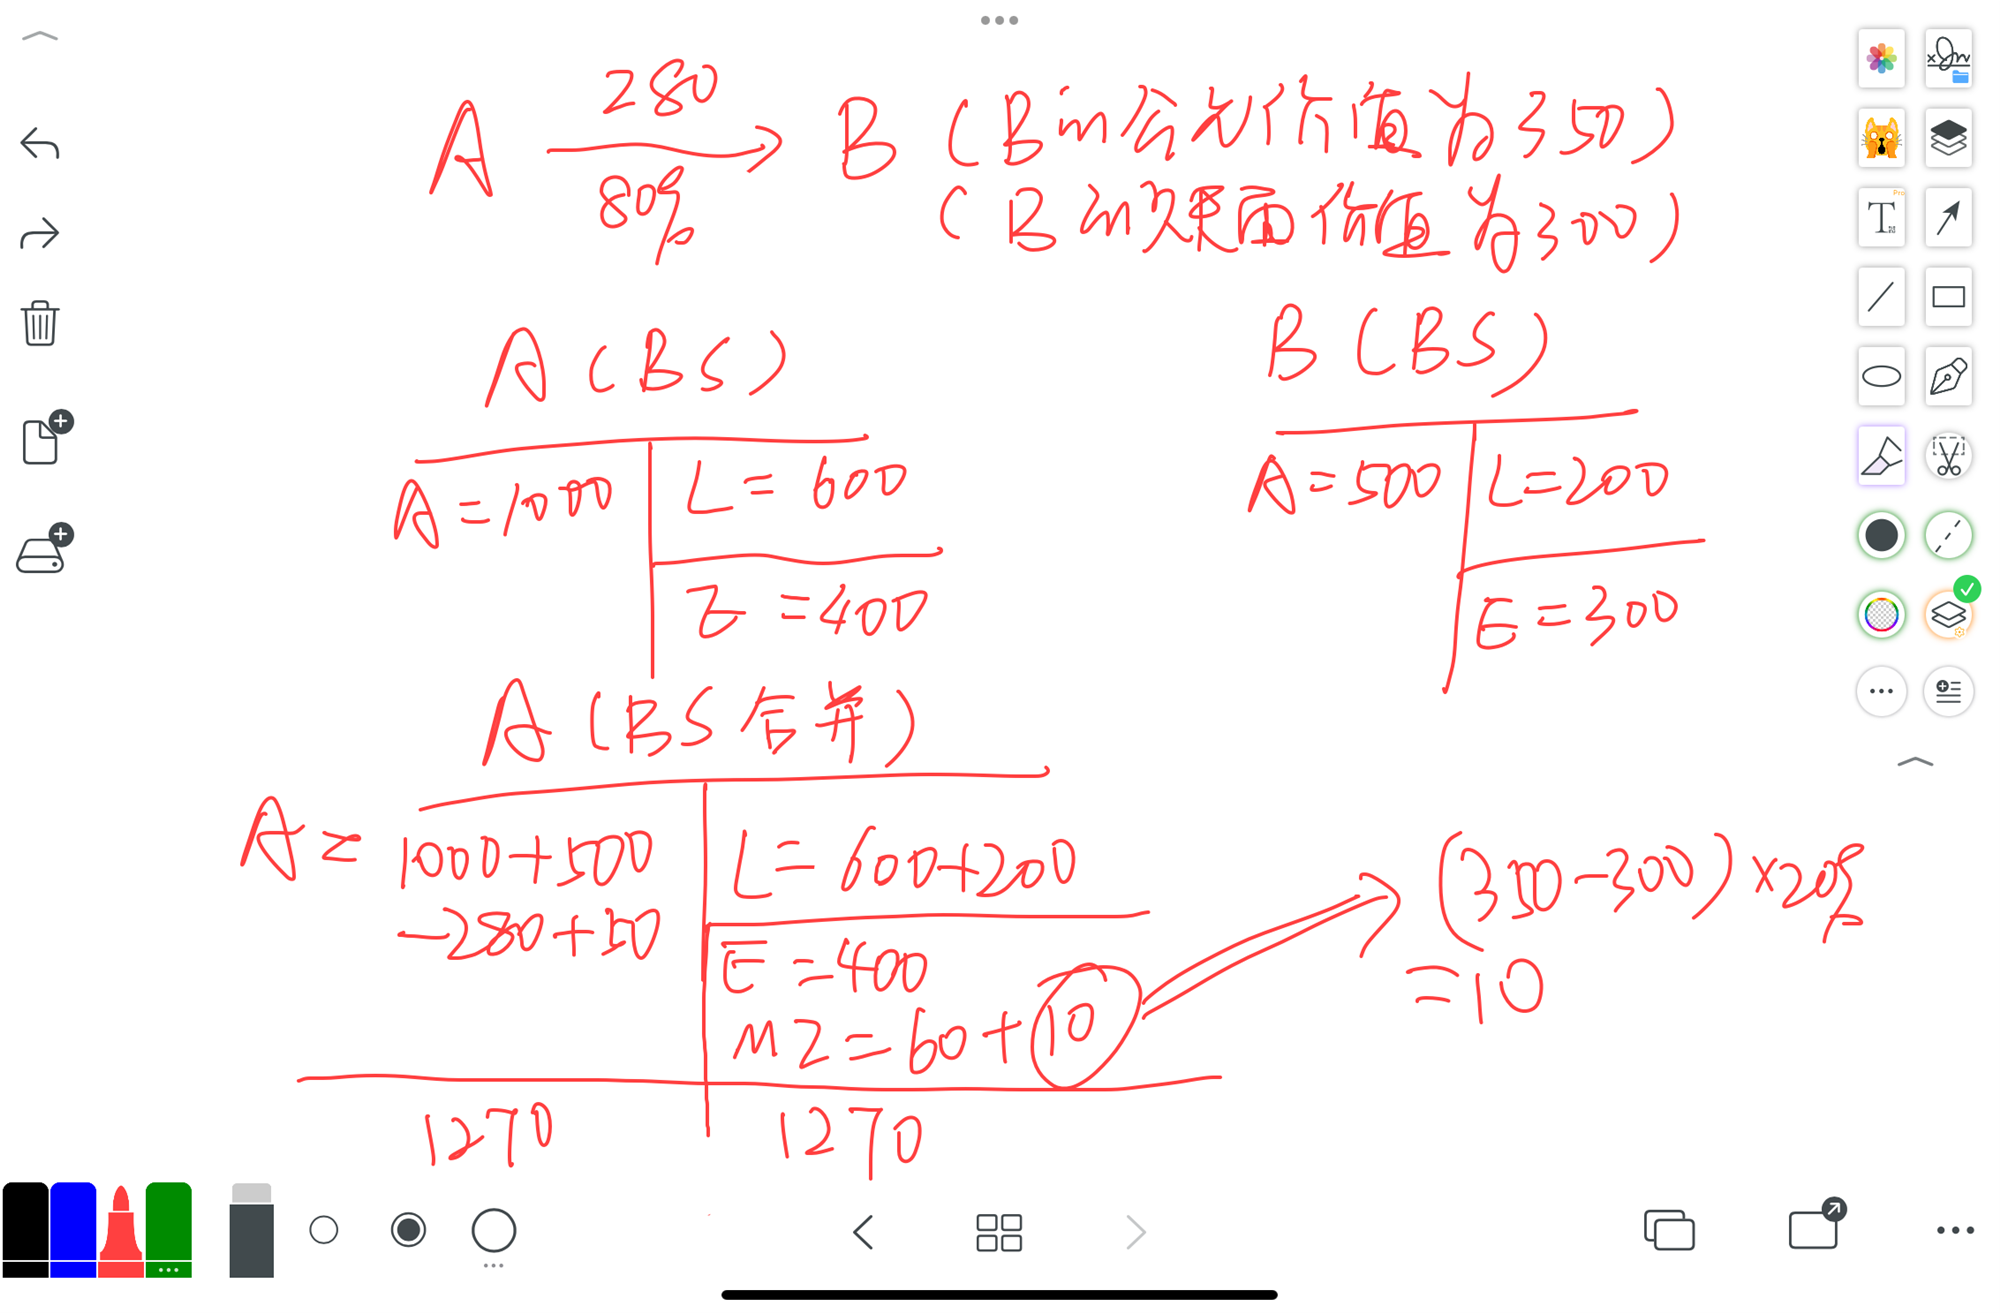 280
A → B (B的公允价值为350)
80%
(B的账面价值为300)
A (BS)
B (BS)
A=1000
L=600
E=400
A=500
L=200
E=300
A (BS合并)
A=
1000+500
-280+50
L=600+200
E=400
MI=60+10
(350-300)×20%
=10
1270
1270